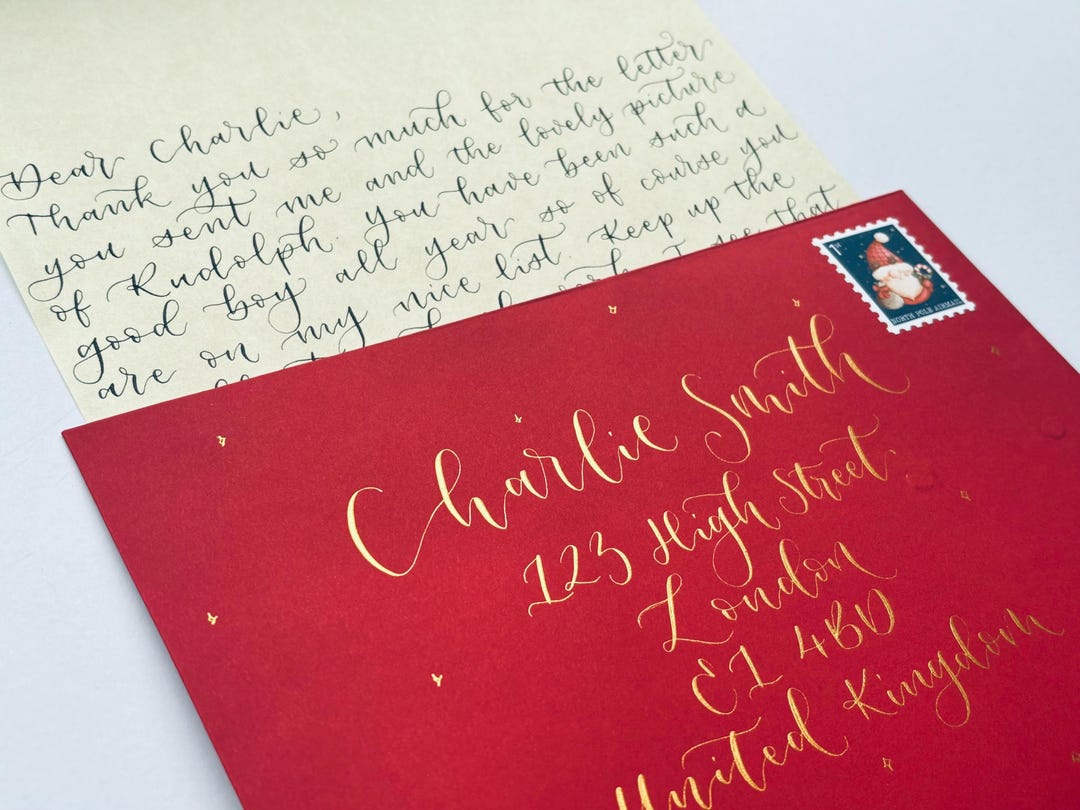 Dear Charlie,
Thank you so much for the letter
you sent me and the lovely picture
of Rudolph. You have been such a
good boy all year so of course you
are on my nice list. Keep up the
work I see that
1st
NORTH POLE AIRMAIL
Charlie Smith
123 High Street
London
E1 4BD
United Kingdom